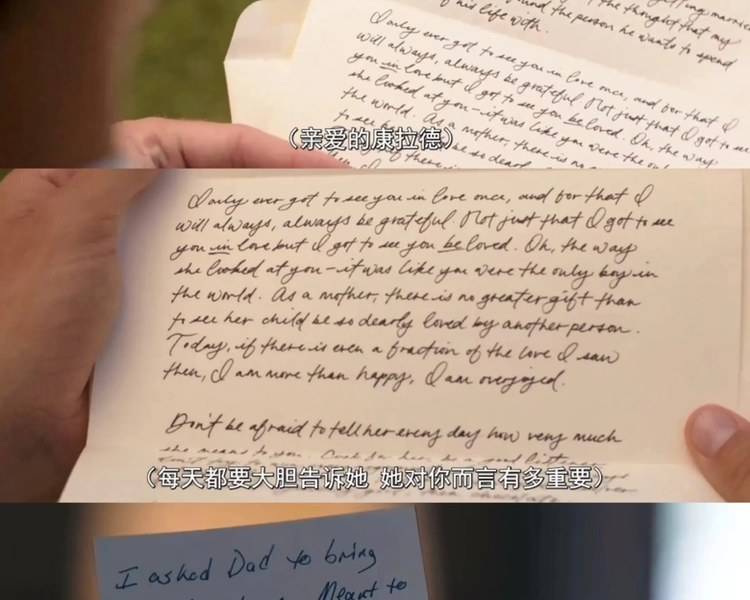 the thought that my
of his life with.
mind the person he wants to spend
I only ever got to see you in love once, and for that I
will always, always be grateful. Not just that I got to see
you in love but I got to see you be loved. Oh, the way
she looked at you - it was like you were the only
the world. As a mother, there is no
（亲爱的康拉德）
I only ever got to see you in love once, and for that I
will always, always be grateful. Not just that I got to see
you in love but I got to see you be loved. Oh, the way
she looked at you - it was like you were the only boy in
the world. As a mother, there is no greater gift than
to see her child be so dearly loved by another person.
Today, if there is even a fraction of the love I saw
then, I am more than happy, I am overjoyed.
Don't be afraid to tell her every day how very much
she means to you.
（每天都要大胆告诉她 她对你而言有多重要）
I asked Dad to bring
Meant to